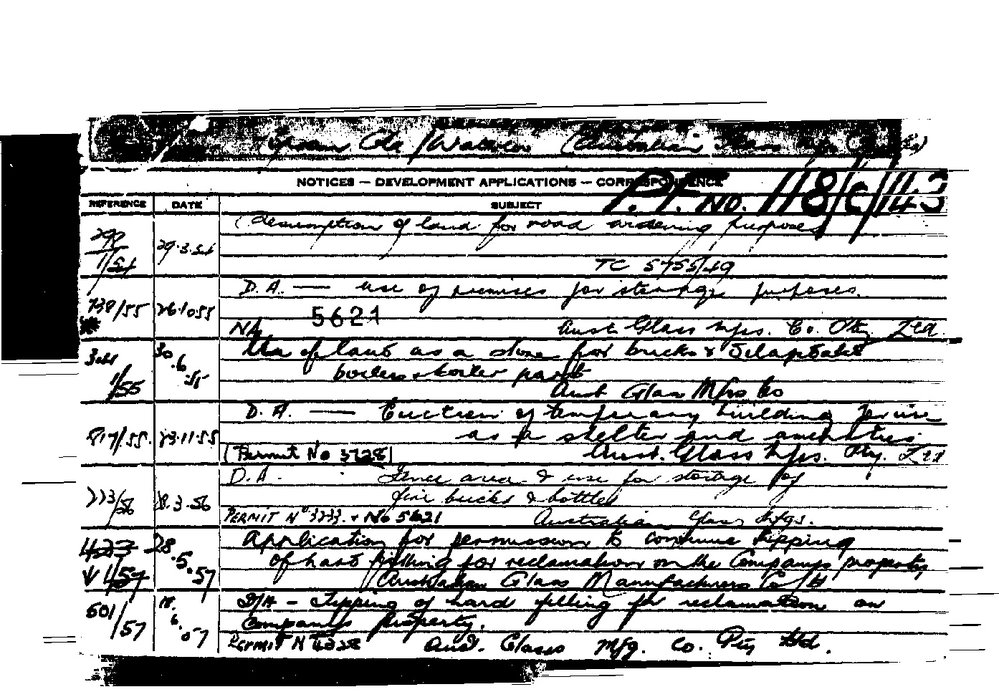 (Australian Glass
NOTICES — DEVELOPMENT APPLICATIONS — CORRESPONDENCE
P.F. NO. 118/C/143
REFERENCE DATE SUBJECT
Resumption of land for road widening purposes
1/54 29.3.54
TC 5755/49
D.A. — use of premises for storage purposes.
738/55 26.10.55
5621
Aust Glass Mfs. Co. Pty. Ltd.
Use of land as a store for bricks &
1/55 30.6.55 boilers & boiler parts
Aust Glass Mfrs Co
D.A. — Erection of temporary building for use
817/55 23.11.55 as a shelter and amenities
(Permit No 3728) Aust. Glass Mfs. Pty. Ltd
D.A. Fence area & use for storage of
fire bricks & bottles
8.3.56
PERMIT No 3233 & No 5621 Australian Glass Mfgs.
Application for permission to continue tipping
28.5.57 of hard filling for reclamation on the Companys property
Australian Glass Manufacturers Co
D/A - Tipping of hard filling for reclamation on
601/57 Companys property.
Permit No 4028 Aust. Glass Mfg. Co. Pty Ltd.